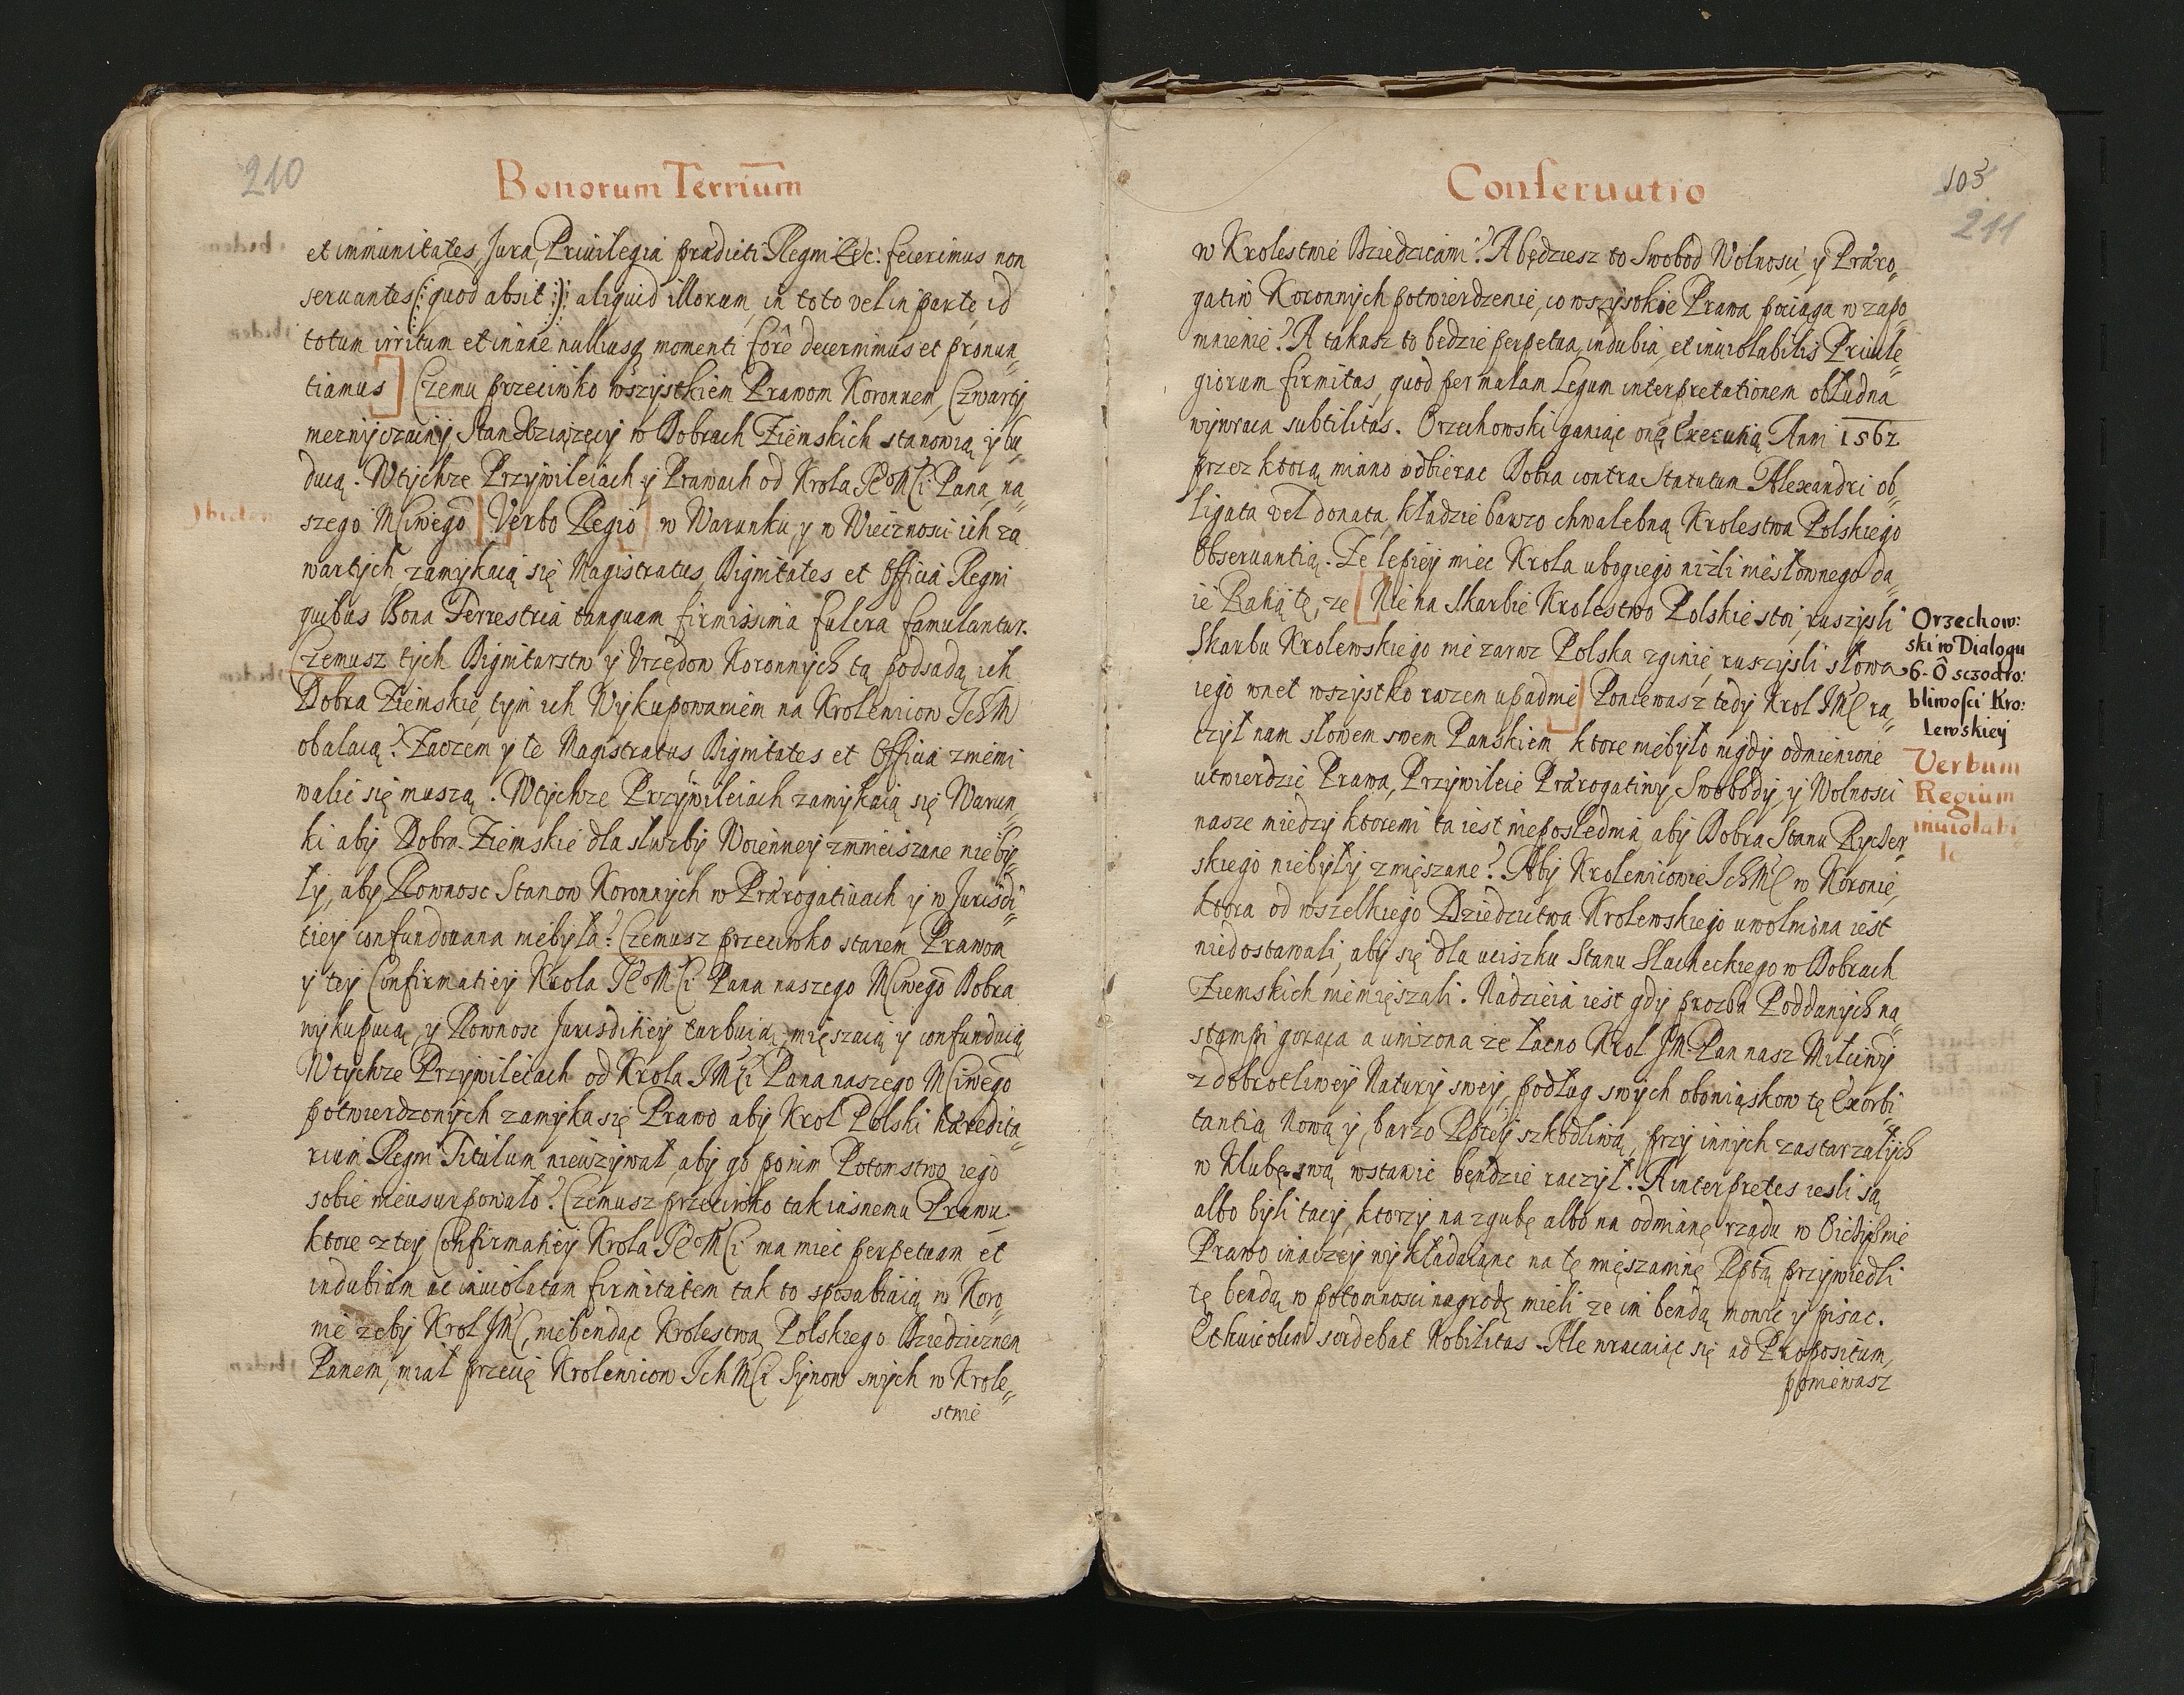 210
Bonorum Terrium̄
et immunitates, Jura, Priuilegia prædicti Regni &c: fecerimus non
seruantes (: quod absit :) aliquid illorum, in toto vel in parte, id
totum irritum et inane nulliusq momenti forê decernimus et pronun„
tiamus] Czemu przeciwko wszystkiem Prawom Koronnem, Czwarty
niezwyczainy Stan Xiążęcy w Dobrach Ziemskich stanowią y bu„
duią. Wtychze Przywileiach y Prawach od Krola Je͞oMści Pana na„
szego Mściwego [Verbo Regio] w Warunku y w Wiecznosci ich za
Ibidem
wartych zamykaią się Magistratus, Dignitates et Officia Regni
quibus Bona Terrestria tanquam firmissima fulcra famulantur.
Czemusz tych Dignitarstw y Urzędow Koronnych tą podsadą ich
Dobra Ziemskie, tym ich Wykupowaniem na Krolewicow IchM
obalaią? Zaczem y te Magistratus Dignitates et Officia znimi
walić się muszą. Wtychze Przywileiach zamykaią się Warun„
ki aby Dobra Ziemskie dla sluzby Woienney zmnieiszane nieby„
ły, aby Rownosc Stanow Koronnych w Prærogatiuach y w Jurisdi„
tiey confundowana niebyla? Czemusz przeciwko starem Prawom
y tey Confirmatiey Krola Je͞oMści Pana naszego Mściwego Dobra
wykupuią, y Rownosc Jurisditiey turbuią, mięszaią y confunduią
Wtychze Przywileiach od Krola JMści Pana naszego Mściwego
potwierdzonych zamyka się Prawo aby Krol Polski hæredita„
rium Regni Titulum nieuzywał, aby go ponim Potomstwo iego
sobie nieusurpowało? Czemusz przeciwko tak iasnemu Prawu
ktore z tey Confirmatiey Krola Je͞oMści ma miec perpetuam et
indubiam ac inuiolatam firmitatem tak to sposabiaią w Koro„
nie zeby Krol JMść, niebendąc Krolestwa Polskiego Dziedzicznem
Panem, miał przecię Krolewicow Ich Mści Synow swych w Krole„
stwie
103
211
Conseruatio
w Krolestwie Dziedzicami? A będziesz to Swobod Wolnosci, y Præro„
gatiw Koronnych potwierdzenie, co wszysokie Prawa pociąga w zapo
mnienie? A takasz to bedzie perpetua, indubia, et inuiolabilis Priuile„
giorum firmitas, quod per malam Legum interpretationem obłudna
wywraca subtilitas. Orzechowski ganiąc onę Executią Anni 1562
przez ktorą miano odbierac Dobra contra Statutum Alexandri ob„
ligata vel donata, kładzie barzo chwalebną Krolestwa Polskiego
Obseruantią. Ze lepiey miec Krola ubogiego nizli niesłownego da„
ie Rakią tę, ze [Nie na Skarbie Krolestwo Polskie stoi, ruszysli
Skarbu Krolewskiego nie zaraz Polska zginie, ruszysli słowa
iego wnet wszystko razem upadnie] Poniewasz tedy Krol JMść ra„
czył nam słowem swem Panskiem ktore niebyło nigdy odmienione
utwierdzic Prawa, Przywileie Prærogatiwy, Swobody, y Wolnosci
nasze miedzy ktoremi ta iest nieposlednia, aby Dobra Stanu Rycer„
skiego niebyły zmięszane? Aby Krolewicowie IchMść w Koronie,
ktora od wszelkiego Dziedzictwa Krolewskiego uwolniona iest
niedostawali, aby się dla uciszku Stanu Slacheckiego w Dobrach
Ziemskich niemięszali. Nadzieia iest gdy prozba Poddanych na„
stąmpi gorąca a unizona ze łacno Krol JM. Pan nasz Miłciwy
z dobrotliwey Natury swey, podług swych obowiąskow tę Exorbi„
tantią Nową y, barzo Rptey szkodliwą, przy innych zastarzałych
w Klubę swą wstawic będzie raczył. A interpretes iesli są
albo byli tacy, ktorzy na zgubę albo na odmianę rządu w Oiczyznie
Prawo inaczey wykładaiąc na tę mięszaninę Rptą przywiedli
tę bendą w potomnosci nagrodę mieli ze im bendą mowic y pisac.
Et huic olim sordebat Nobilitas. Ale wracaiąc się ad Propositum,
poniewasz
Orzechow:
ski w Dialogu
6. Ô sczodro:
bliwości Kro:
lewskiey
Verbum
Regium
inuiolabi„
le